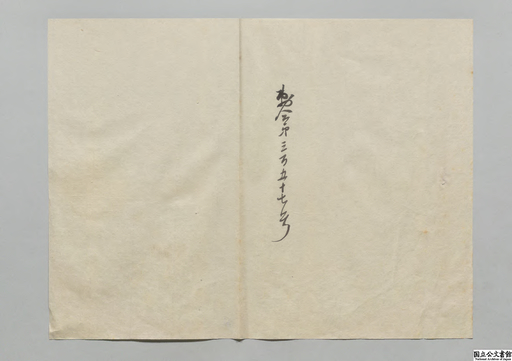 勅令第三百五十七号
国立公文書館
National Archives of Japan